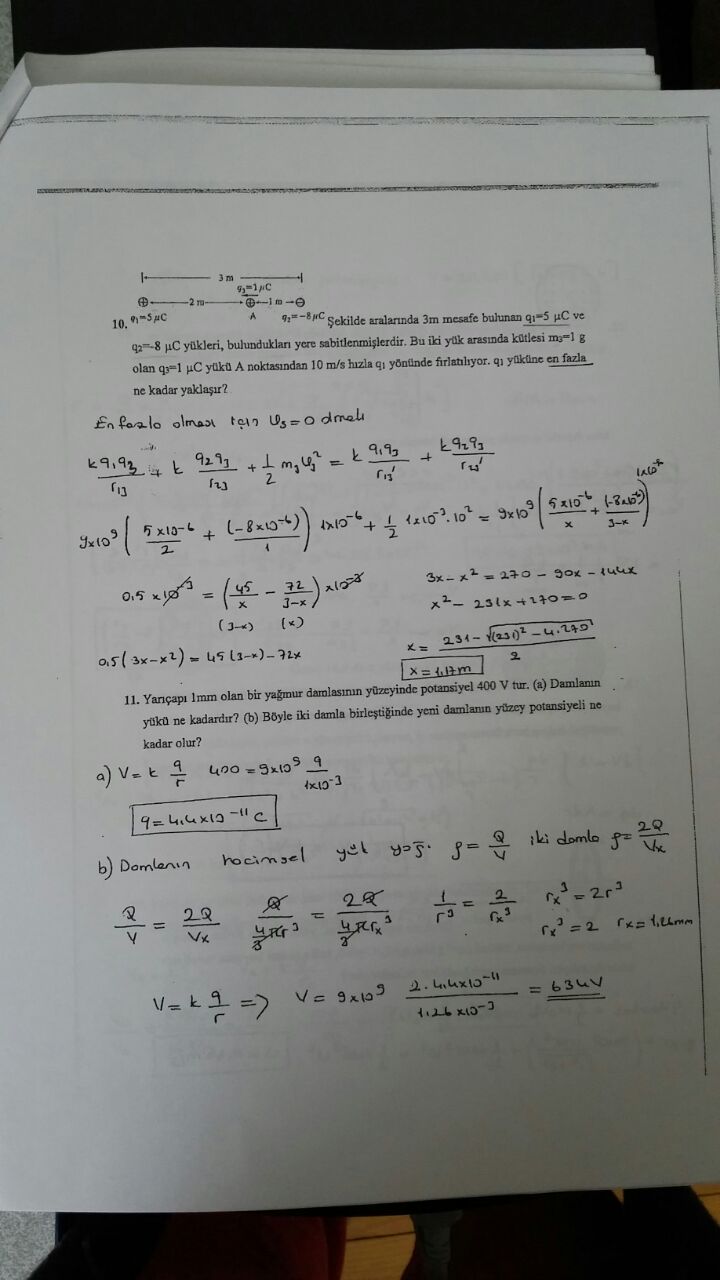 3 m
q₃=1 µC
⊕ 2 m ⊕ 1 m ⊖
q₁=5 µC A q₂=-8 µC
10. Şekilde aralarında 3m mesafe bulunan q₁=5 µC ve
q₂=-8 µC yükleri, bulundukları yere sabitlenmişlerdir. Bu iki yük arasında kütlesi m₃=1 g
olan q₃=1 µC yükü A noktasından 10 m/s hızla q₁ yönünde fırlatılıyor. q₁ yüküne en fazla
ne kadar yaklaşır?
En fazla olması için υ₃=0 olmalı
k q₁q₃/r₁₃ + k q₂q₃/r₂₃ + 1/2 m₃υ₃² = k q₁q₃/r₁₃' + k q₂q₃/r₂₃'
9x10⁹ ( 5x10⁻⁶/2 + (-8x10⁻⁶)/1 ) 1x10⁻⁶ + 1/2 1x10⁻³.10² = 9x10⁹ ( 5x10⁻⁶/x + (-8x10⁻⁶)/3-x ) 1x10⁻⁶
0.5 x10⁻³ = ( 45/x - 72/3-x ) x10⁻³
(3-x) (x)
0,5 ( 3x-x²) = 45(3-x)-72x
3x-x² = 270-90x-144x
x²-231x+270=0
x = 231-√(231)²-4.270 / 2
x=1,17m
11. Yarıçapı 1mm olan bir yağmur damlasının yüzeyinde potansiyel 400 V tur. (a) Damlanın
yükü ne kadardır? (b) Böyle iki damla birleştiğinde yeni damlanın yüzey potansiyeli ne
kadar olur?
a) V= k q/r 400 = 9x10⁹ q/1x10⁻³
q=4,4x10⁻¹¹ C
b) Damlanın hacimsel yük yoğ. ρ= Q/V iki damla ρ= 2Q/Vx
Q/V = 2Q/Vx Q/(4/3 πr³) = 2Q/(4/3 πrₓ³) 1/r³ = 2/rₓ³ rₓ³ = 2r³
rₓ³ = 2 rₓ = 1,26mm
V= k q/r => V= 9x10⁹ 2.4,4x10⁻¹¹/1,26x10⁻³ = 634V